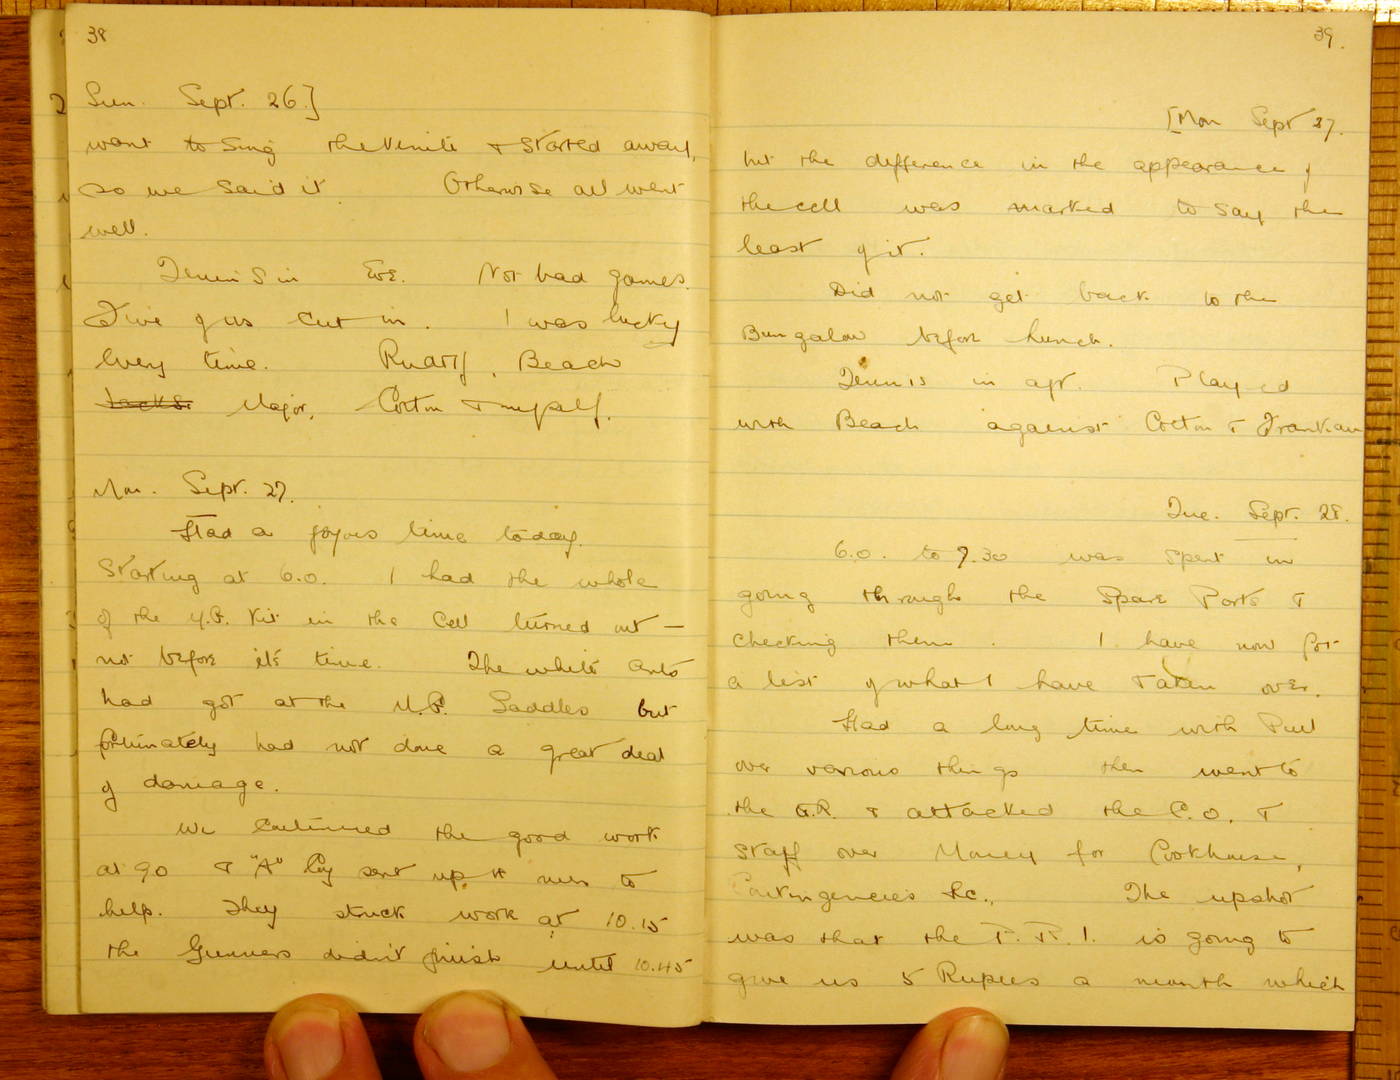 38
Sun. Sept. 26.]
want to sing the Venite & started away,
so we said it Otherwise all went
well.
Tennis in Eve. Not bad games.
Five of us cut in. I was lucky
every time. Beach
Jacks. Major, Cotton & myself.
Mon. Sept. 27.
Had a joyous time today.
Starting at 6.0. I had the whole
of the M.G. Kit in the Cell turned out —
not before it's time. The white ants
had got at the M.G. Saddles but
fortunately had not done a great deal
of damage.
We continued the good work
at 9.0 & "A" Coy sent up men to
help. They struck work at 10.15
the Gunners didn't finish until 10.45
39.
[Mon Sept 27.
but the difference in the appearance of
the cell was marked to say the
least of it.
Did not get back to the
Bungalow before lunch.
Tennis in aft. Played
with Beach against Cotton & Frankau
Tue. Sept. 28.
6.0. to 7.30 was spent in
going through the Spare Parts &
checking them. I have now got
a list of what I have taken over.
Had a long time with Paul
over various things then went to
the O.R. & attacked the C.O. &
Staff over Money for Cookhouse,
Contingencies &c., The upshot
was that the P.R.I. is going to
give us 5 Rupees a month which